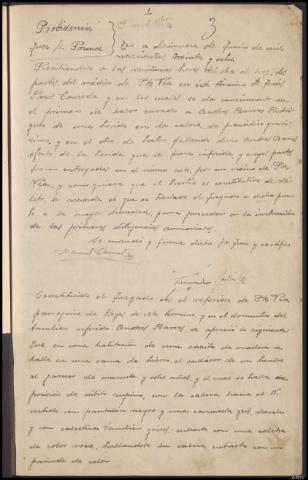 1
3
Providencia
Juez Sr. Pomar
a diecinueve de Junio de mil
novecientos treinta y ocho
Recibiéndose a las veintiuna horas del día de hoy, dos
partes del médico de Sta Vaia en este término D. José
Sanz Loureda y en los cuales se da conocimiento en
el primero de haber curado a Andres Barros
de una herida en la cabeza, de pronóstico graví-
simo, y en el otro de haber fallecido dicho Andres Barros
efecto de la herida que se
fueron entregados en el mismo acto por un vecino de Sta
y como quiera que el hecho es constitutivo de de-
lito, se acuerda el que se traslade el Juzgado a dicho pun-
to a la mayor brevedad, para proceder a la instrucción
de las primeras diligencias sumariales.
Lo mandó y firma dicho Sr. Juez y certifico
Constituido el Juzgado en el referido de Sta Vaia
parroquia de de este término y en el domicilio del
también referido Andres Barros se aprecia lo siguiente:
Que en una habitación de una casita de madera se
halla en una cama de hierro, el cadáver de un hombre
al parecer de cuarenta y ocho años, y el cual se halla en
posición de cúbito supino, con la cabeza hacia el
vestido con pantalón negro y una camiseta gris,
y con calcetines también grises, cubierto con una colcha
de color rosa, hallándose la cabeza cubierta con un
pañuelo de color